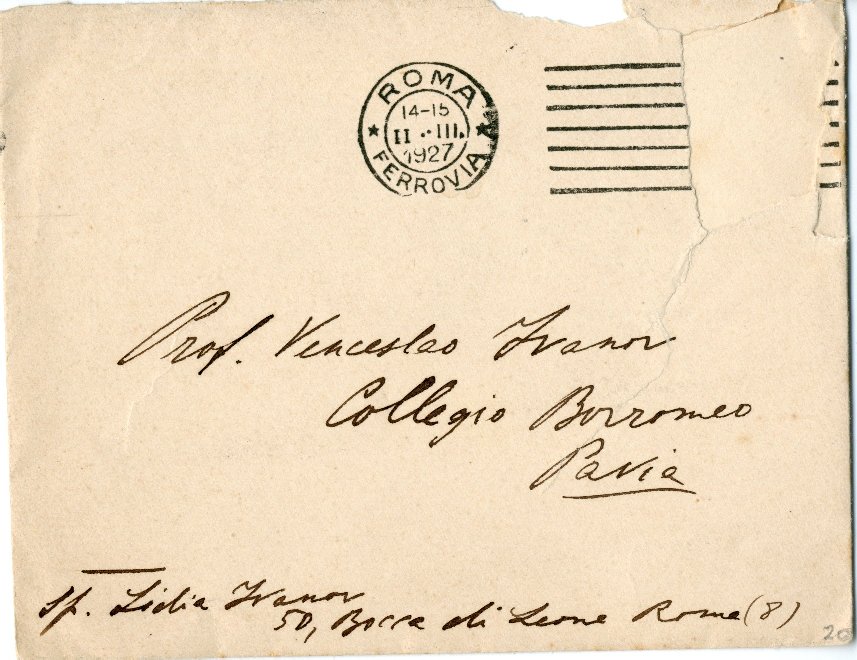 ROMA
14-15
II ·· III.
1927
FERROVIA
Prof. Venceslao Ivanov
Collegio Borromeo
Pavia
Sp. Lidia Ivanov
50, Bocca di Leone Roma (8)
20